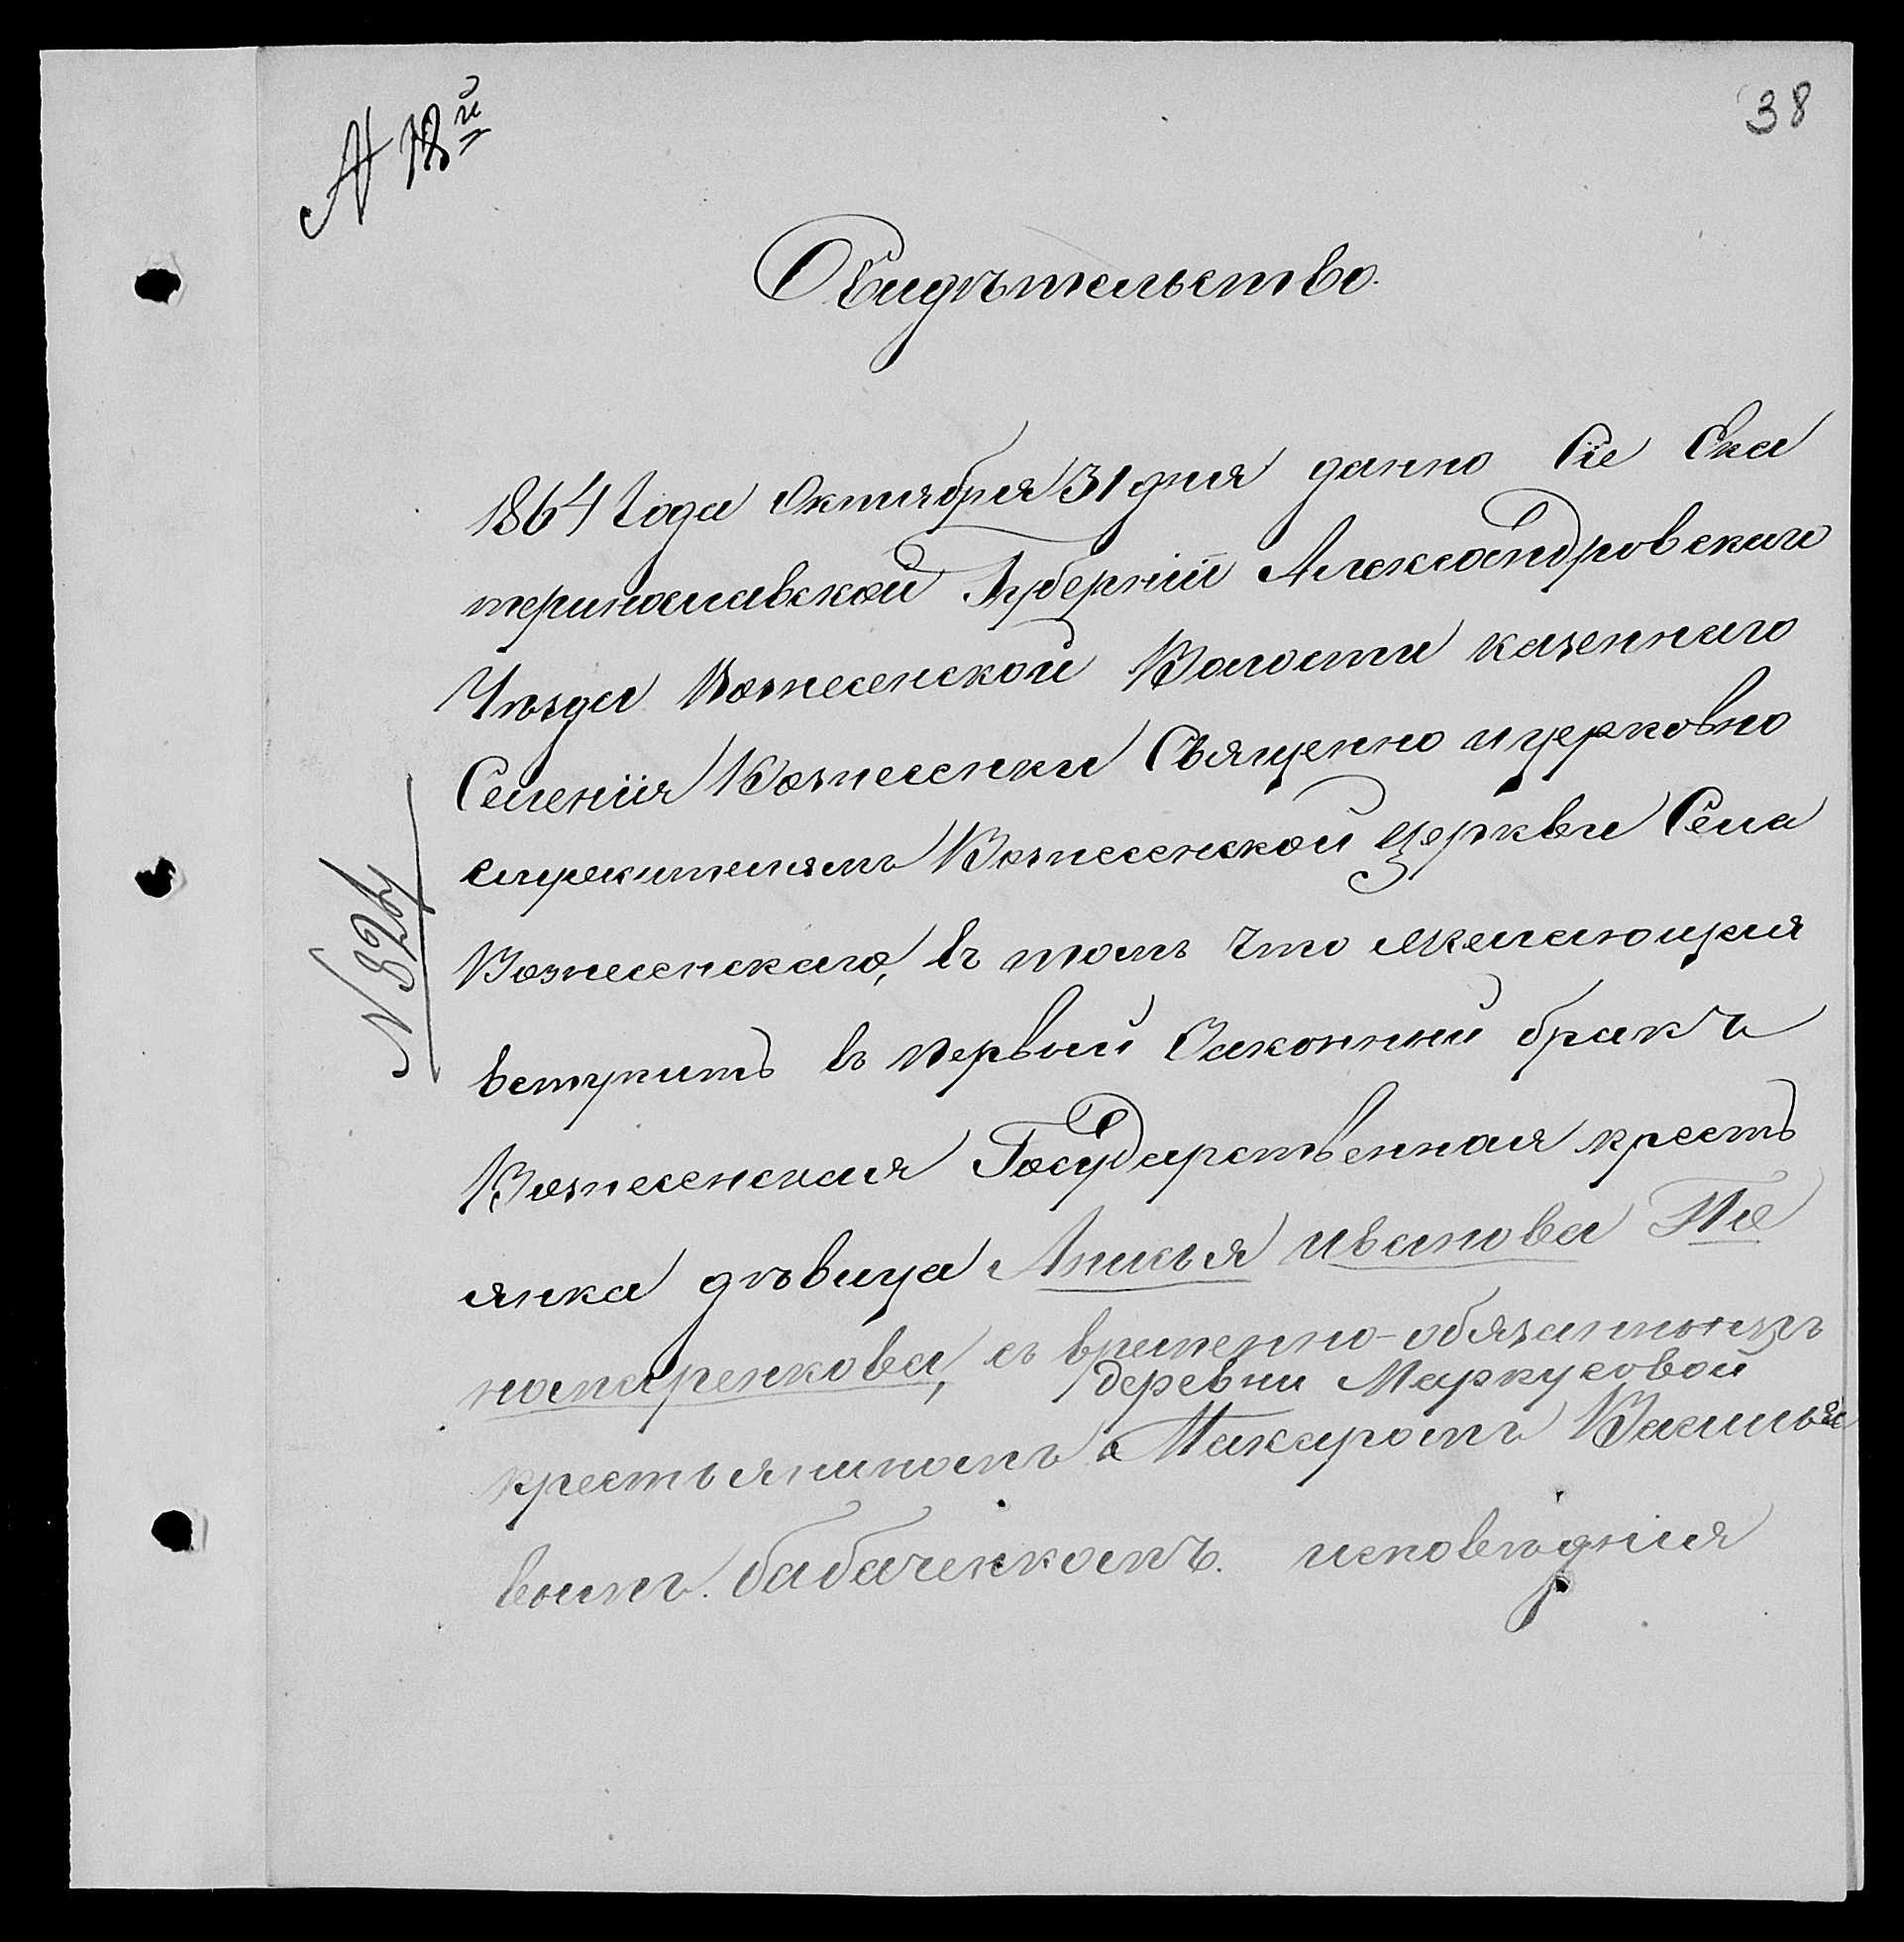 38
А 18й
Свидѣтельство.
1864 Года Октября 31 дня данно Сіе Ека
теринославской Губерніи Александровскаго
Уѣзда Вознесенской Волости казеннаго
Селенія Вознесенки Священно и церковно
служителямъ Вознесенской Церкви Села
Вознесенскаго, въ томъ что желающая
вступить въ первый Законный бракъ
Вознесенская Государственная кресть
янка дѣвица Анисья Иванова По
номаренкова, съ временно-обязаннымъ
деревни Маркусовой
крестьяниномъ Макаромъ Василье
вымъ бабаченкомъ. исповѣднія
N 824